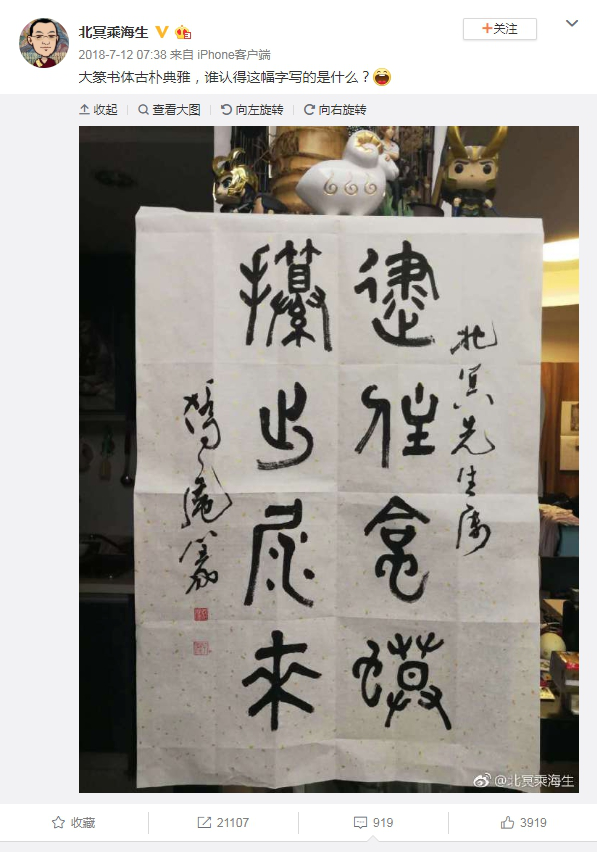 北冥乘海生
+关注
2018-7-12 07:38 来自 iPhone客户端
大篆书体古朴典雅，谁认得这幅字写的是什么？
收起 查看大图 向左旋转 向右旋转
北冥先生属
逮住蛤蟆
攥出尿来
@北冥乘海生
收藏 21107 919 3919